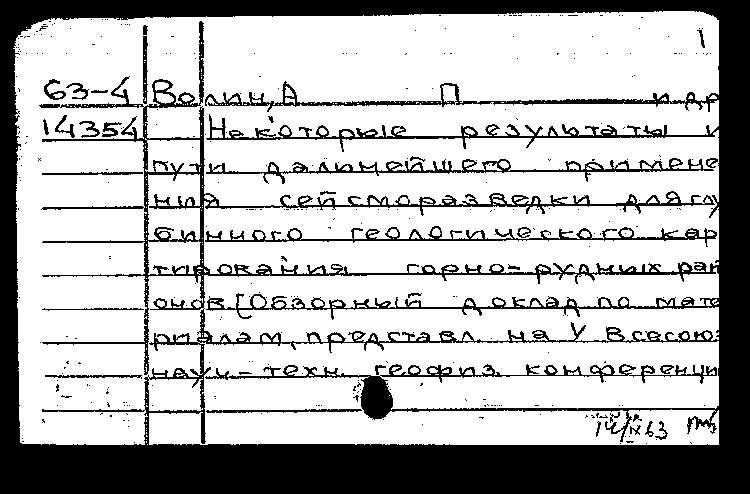 1
63-4 Волин, А П и др
14354 Некоторые результаты и
пути дальнейшего примене
ния сейсморазведки для глу
бинного геологического кар
тирования горно-рудных рай
онов [Обзорный доклад по мате
риалам, представл. на V Всесоюз
науч-техн. геофиз. конференци
14/IX 63